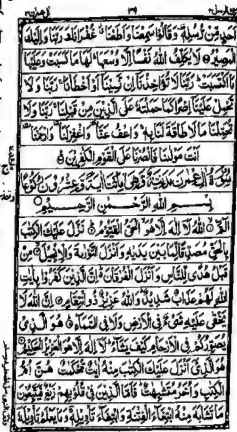 اَحَدٍ مِّنْ رُّسُلِهٖ وَقَالُوْا سَمِعْنَا وَاَطَعْنَا غُفْرَانَكَ رَبَّنَا وَاِلَيْكَ
الْمَصِيْرُ لَا يُكَلِّفُ اللّٰهُ نَفْسًا اِلَّا وُسْعَهَا لَهَا مَا كَسَبَتْ وَعَلَيْهَا
مَا اكْتَسَبَتْ رَبَّنَا لَا تُؤَاخِذْنَا اِنْ نَّسِيْنَا اَوْ اَخْطَاْنَا رَبَّنَا وَلَا
تَحْمِلْ عَلَيْنَا اِصْرًا كَمَا حَمَلْتَهٗ عَلَى الَّذِيْنَ مِنْ قَبْلِنَا رَبَّنَا وَلَا
تُحَمِّلْنَا مَا لَا طَاقَةَ لَنَا بِهٖ وَاعْفُ عَنَّا وَاغْفِرْ لَنَا وَارْحَمْنَا
اَنْتَ مَوْلٰىنَا فَانْصُرْنَا عَلَى الْقَوْمِ الْكٰفِرِيْنَ
بِسْمِ اللّٰهِ الرَّحْمٰنِ الرَّحِيْمِ
الٓمّٓ اللّٰهُ لَا اِلٰهَ اِلَّا هُوَ الْحَيُّ الْقَيُّوْمُ نَزَّلَ عَلَيْكَ الْكِتٰبَ
بِالْحَقِّ مُصَدِّقًا لِّمَا بَيْنَ يَدَيْهِ وَاَنْزَلَ التَّوْرٰىةَ وَالْاِنْجِيْلَ مِنْ
قَبْلُ هُدًى لِّلنَّاسِ وَاَنْزَلَ الْفُرْقَانَ اِنَّ الَّذِيْنَ كَفَرُوْا بِاٰيٰتِ
اللّٰهِ لَهُمْ عَذَابٌ شَدِيْدٌ وَاللّٰهُ عَزِيْزٌ ذُو انْتِقَامٍ اِنَّ اللّٰهَ لَا
يَخْفٰى عَلَيْهِ شَيْءٌ فِي الْاَرْضِ وَلَا فِي السَّمَآءِ هُوَ الَّذِيْ
يُصَوِّرُكُمْ فِي الْاَرْحَامِ كَيْفَ يَشَآءُ لَا اِلٰهَ اِلَّا هُوَ الْعَزِيْزُ الْحَكِيْمُ
هُوَ الَّذِيْ اَنْزَلَ عَلَيْكَ الْكِتٰبَ مِنْهُ اٰيٰتٌ مُّحْكَمٰتٌ هُنَّ اُمُّ
الْكِتٰبِ وَاُخَرُ مُتَشٰبِهٰتٌ فَاَمَّا الَّذِيْنَ فِيْ قُلُوْبِهِمْ زَيْغٌ فَيَتَّبِعُوْنَ
مَا تَشَابَهَ مِنْهُ ابْتِغَآءَ الْفِتْنَةِ وَابْتِغَآءَ تَاْوِيْلِهٖ وَمَا يَعْلَمُ تَاْوِيْلَهٗ